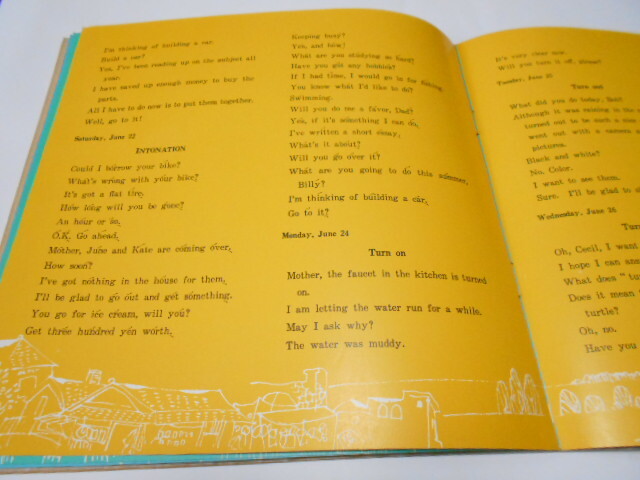 I'm thinking of building a car.
Build a car?
Yes, I've been reading up on the subject all
year.
I have saved up enough money to buy the
parts.
All I have to do now is to put them together.
Well, go to it!
Saturday, June 22
INTONATION
Could I borrow your bike?
What's wrong with your bike?
It's got a flat tire.
How long will you be gone?
An hour or so.
O.K. Go ahead.
Mother, June and Kate are coming over.
How soon?
I've got nothing in the house for them.
I'll be glad to go out and get something.
You go for ice cream, will you?
Get three hundred yen worth.
Keeping busy?
Yes, and how!
What are you studying so hard?
Have you got any hobbies?
If I had time, I would go in for fishing.
You know what I'd like to do?
Swimming.
Will you do me a favor, Dad?
Yes, if it's something I can do.
I've written a short essay.
What's it about?
Will you go over it?
What are you going to do this summer,
Billy?
I'm thinking of building a car.
Go to it?
Monday, June 24
Turn on
Mother, the faucet in the kitchen is turned
on.
I am letting the water run for a while.
May I ask why?
The water was muddy.
It's very clear now.
Will you turn it off,
Tuesday, June 25
Turn out
What did you do today,
Although it was raining in the
turned out to be such a
went out with a camera
pictures.
Black and white?
No. Color.
I want to see them.
Sure. I'll be glad to
Wednesday, June 26
Oh, Cecil, I want
I hope I can
What does "
Does it mean
turtle?
Oh, no.
Have you